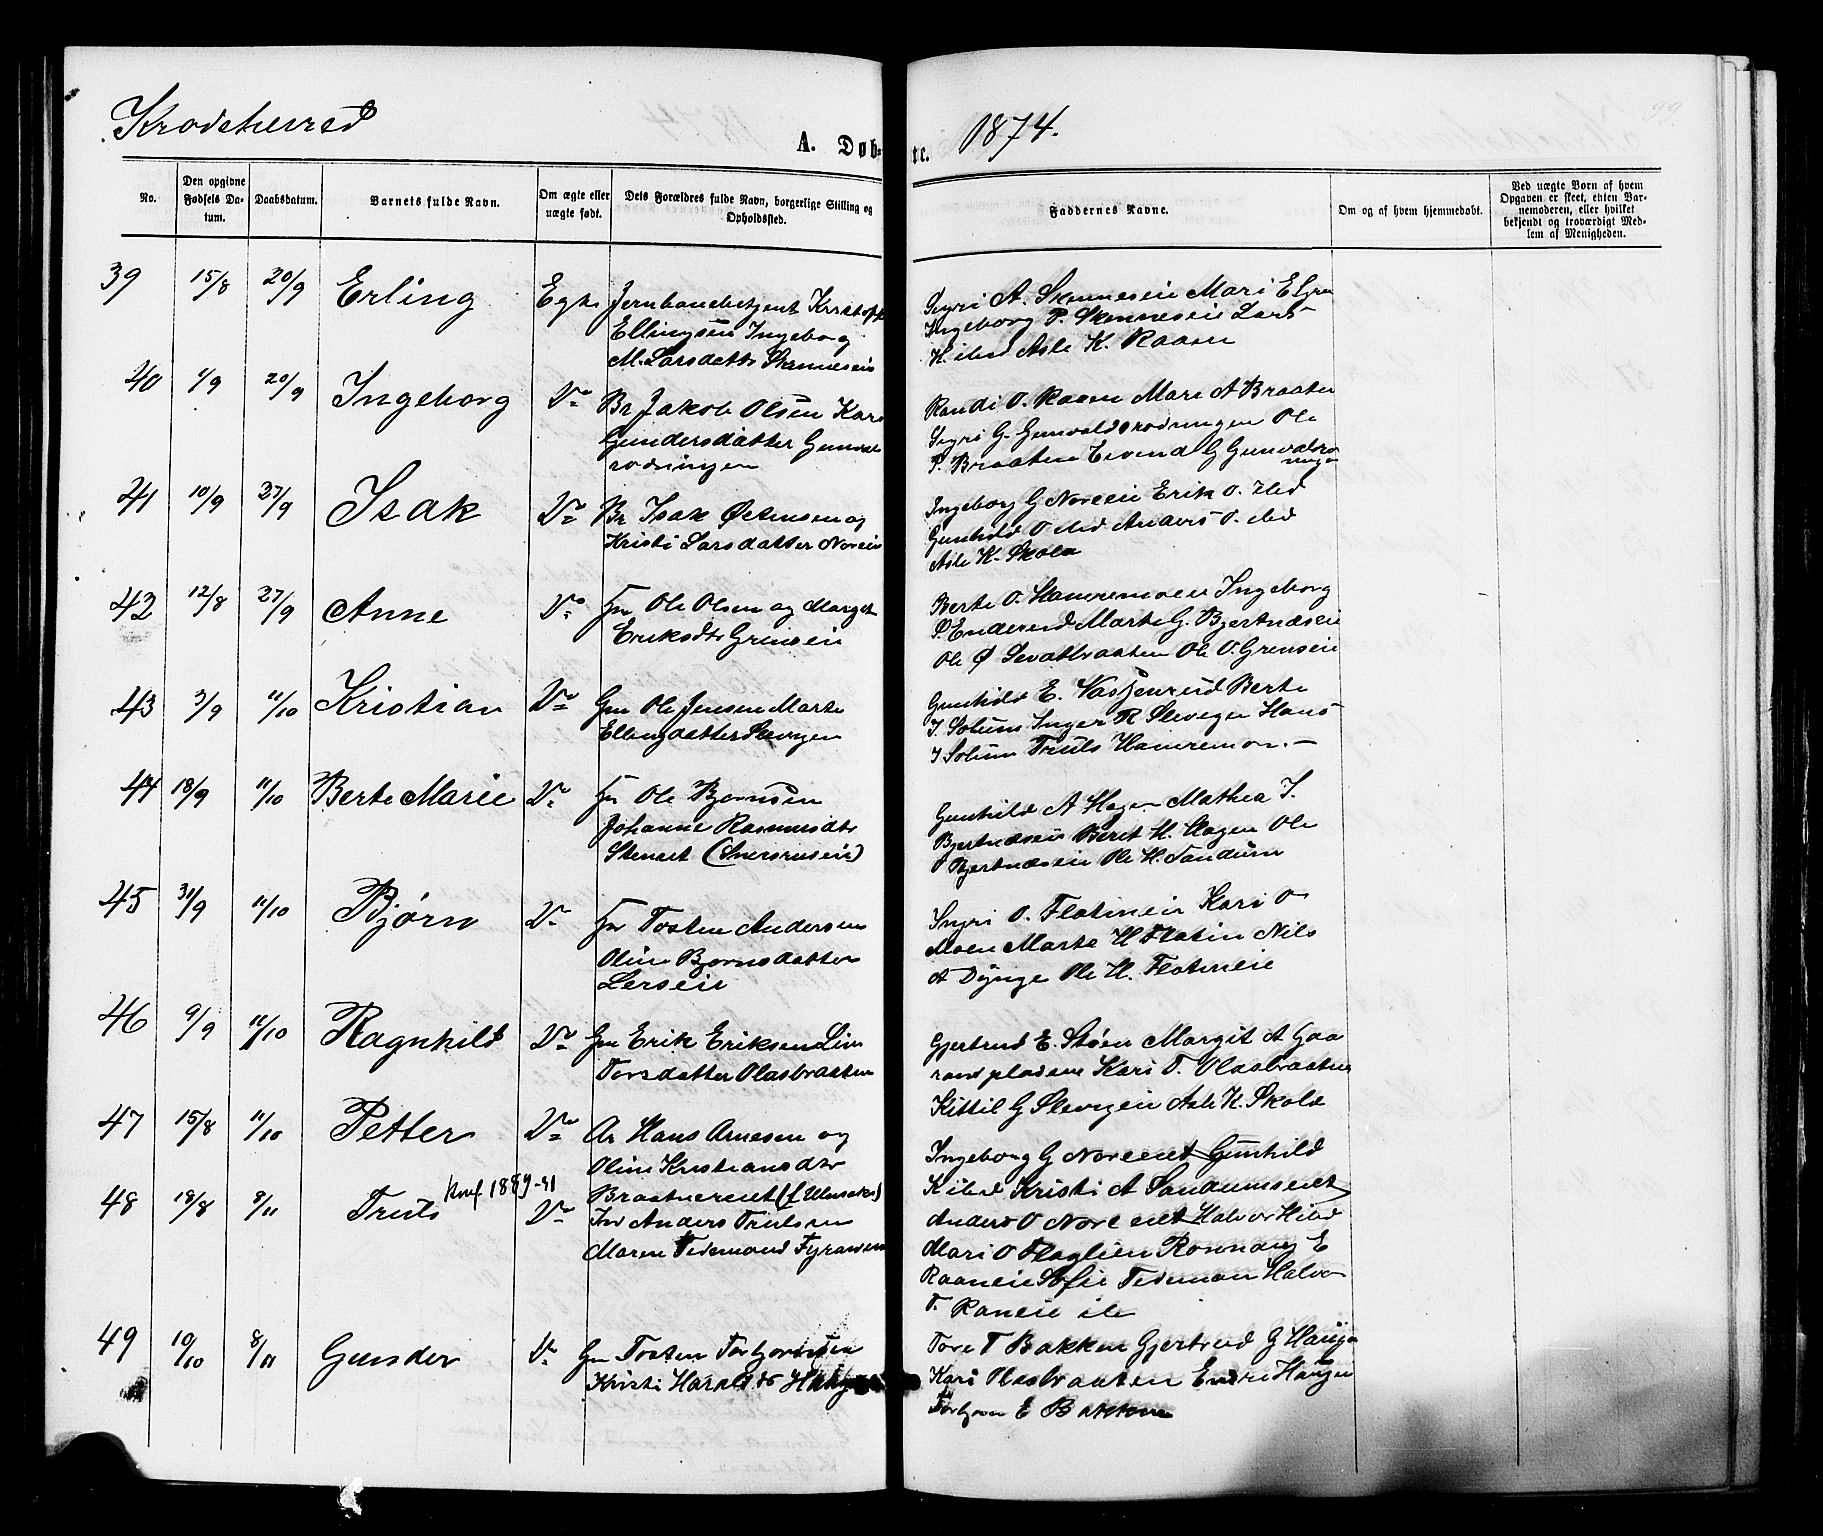 Krødsherred
A. Døb-
te.
1874.
99
No.
Den opgivne Fødsels Da-tum.
Daabsdatum.
Barnets fulde Navn.
Om ægte eller uægte født.
Dets Forældres fulde Navn, borgerlige Stilling og Opholdssted.
Faddernes Navne.
Om og af hvem hjemmedøbt.
Ved uægte Børn af hvem Opgaven er skeet, enten Bar-nemoderen, eller hvilket bekjendt og troværdigt Med-lem af Menigheden.
39 15/8 20/9 Erling Egte Jernbanebetjent Kristof
Ellingsen Ingeborg
M. Larsdatter
Sigri A. Mari E
Ingeborg P. Lars
K. ibd Asle K. Raaen
40 1/9 20/9 Ingeborg Do Br Jakob Olsen Kari
Gundersdatter Gunvalds
rodningen
Randi O. Raaen Mari A Braaten
Sigri G. Gunvaldsrodningen Ole
P. Braaten Eivend G Gunvaldsro
ningen
41 10/9 27/9 Isak Do Br Isak Østensen og
Kristi Larsdatter Noreie
Ingeborg G Noreeie Erik O. ibd
Gunhild O ibd Anders O. ibd
Asle K. Skole
42 12/8 27/9 Anne Do Hm Ole Olsen og Margit
Eriksdtr Grenseie
Berte O. Hamremoen Ingeborg
P. Enderud Marte G. Bjertnæseie
Ole Ø Sevatbraaten Ole O. Grenseie
43 3/9 11/10 Kristian Do Gm Ole Jensen Marte
Ellingdatter Slevigen
Gunhild E. Berte
I. Solum Inger R Slevigen Hans
I Solum Truls Hamremoen. —
44 18/9 11/10 Berte Marie Do Hm Ole Bjornsen
Johanne Rasmusdtr
Gunhild A Hagen Mathea I.
Bjertnæseie Berit H. Hagen Ole
O Bjertnæseie Ole H. Sandum
45 31/9 11/10 Bjørn Do Hm Tosten Andersen
Oline Bjornsdatter
Lerseie
Sigri O. Flatineie Kari O
Moen Marte H Flatin Nils
A Dynge Ole H. Flatineie
46 9/9 11/10 Ragnhild Do Gm Erik Eriksen Liv
Torsdatter Olasbraaten
Gjertrud E. Støen Margit A Gaa
randpladsen Kari T. Olasbraaten
Kittil G Slevigen Asle K. Skole
47 15/8 11/10 Petter Do Ar Hans Arnesen og
Oline Kristiansdtr
Braatnereiet
Ingeborg G Noreeiet Gunhild
K ibd Kristi A Sandumseiet
Anders O Noreeiet Halvor H ibd
48 18/8 8/11 Truls Konf. 1889-41 Do Anders Trulsen
Maren Tidemand
Mari O Flaglien Ronnaug E
Raaneie Sofie Tideman Halvor
T. Raneie
49 10/10 8/11 Gunder Do Gm Tosten Torbjornsen
Kristi Haralds dtr
Tore T Bakken Gjertrud G Haugen
Kari Olasbraaten Endre Haugen
Torbjorn E Bakken